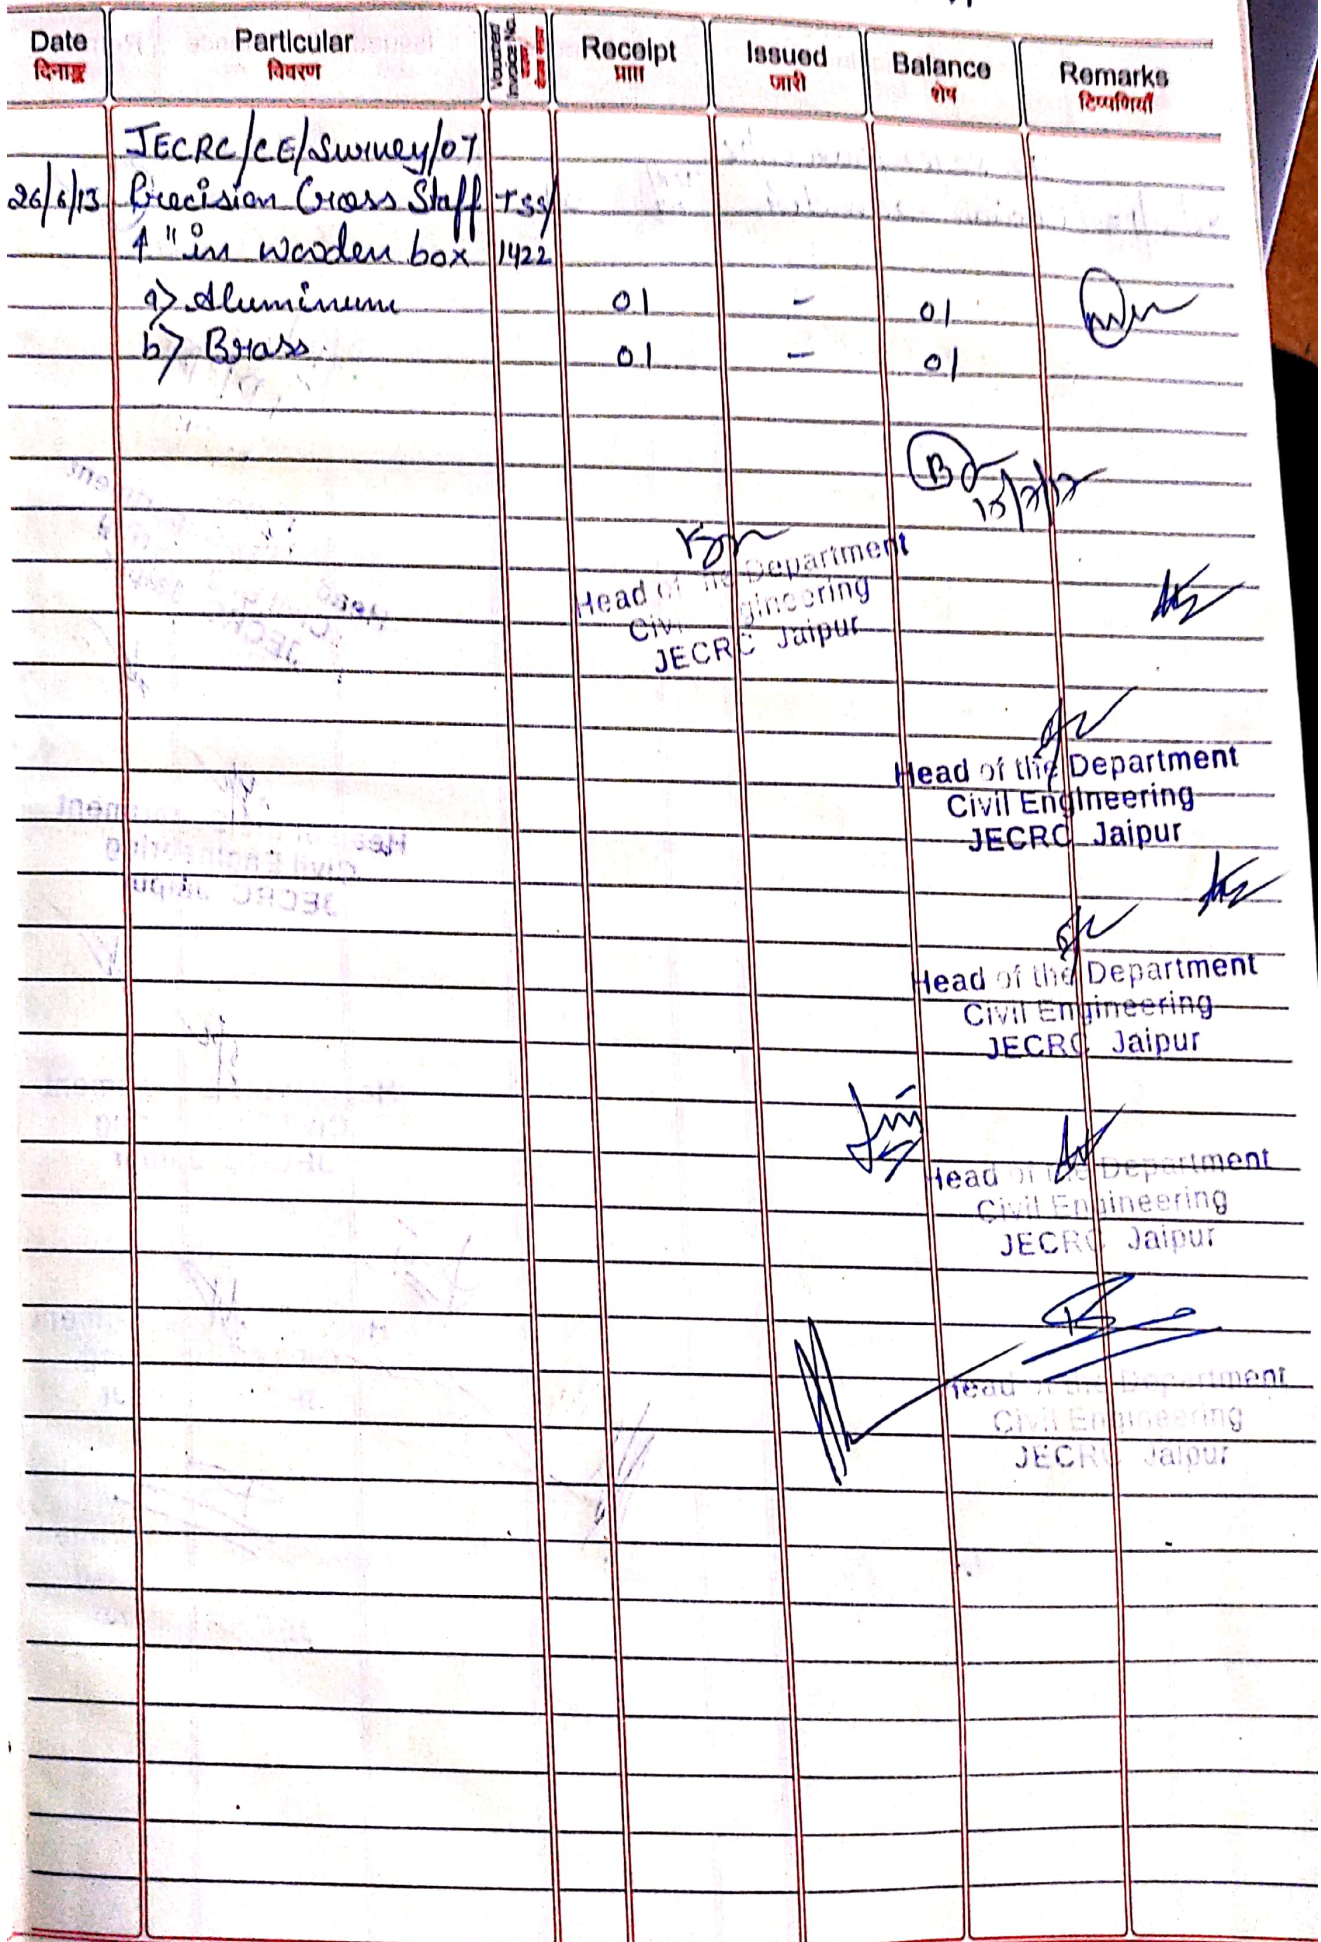 Date Particular Voucher/ Invoice No. Receipt Issued Balance Remarks
दिनाङ्क विवरण प्राप्त जारी शेष टिप्पणियाँ
JECRC/CE/Survey/07
26/6/13 Precision Cross Staff TSS/
4" in wooden box 1422
a) Aluminum 01 - 01
b) Brass 01 - 01
Head of the Department
Civil Engineering
JECRC Jaipur
Head of the Department
Civil Engineering
JECRC Jaipur
Head of the Department
Civil Engineering
JECRC Jaipur
Head of the Department
Civil Engineering
JECRC Jaipur
Head of the Department
Civil Engineering
JECRC Jaipur